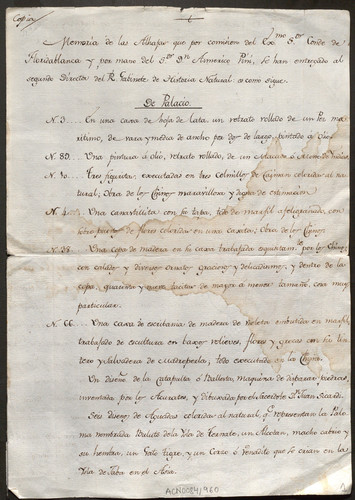 Copia
Memoria de las Alhajas que por comision del Exc.mo S.or Conde de
Floridablanca y por mano del S.or Dn Almerico Pini, se han entregado al
segundo Director del Rl Gabinete de Historia Natural à como sigue.
De Palacio.
N. 3 .... En una caxa de hoja de lata, un retrato rollado de un Pez ma-
ritimo, de vara y media de ancho por dos de largo, pintado à Olio.
N. 80. Una pintura à olio, retrato rollado, de un
N. 30. Tres figuritas, executadas en tres Colmillos de Cayman coloridas al na-
tural; Obra de los Chinos maravillosa y digna de estimacion
N. 4 Una canastillita con su tapa, todo de marfil afeligranado, con
de flores coloridas en una caxita; Obra de los Chinos
N. 38. Una Copa de madera en su caxa trabajada por los Chinos
con calados y diversos ornatos graciosos y delicadisimos, y dentro de la
copa, de mayor à menor tamaño, cosa muy
particular.
N. 66. Una caxa de escribania de madera de violeta embutida en marfil
trabajado de escultura en baxos relieves, flores y Grecas con su tin-
tero y salvadera de Madreperla, todo executado en la China.
Un diseño de la Catapulta ò Ballesta, maquina de disparar piedras,
inventada por los y por el Sacerdote D. Juan
Seis dibujos de Aguadas coloridas al natural, q.e representan la Palo-
ma nombrada de la Ysla de Ternate, un Alcatan, macho cabrio y
su hembra, un Gato tigre, y un Corzo ò Venadito que se crian en la
Ysla de Jaba en el Asia.
ACN0024/960